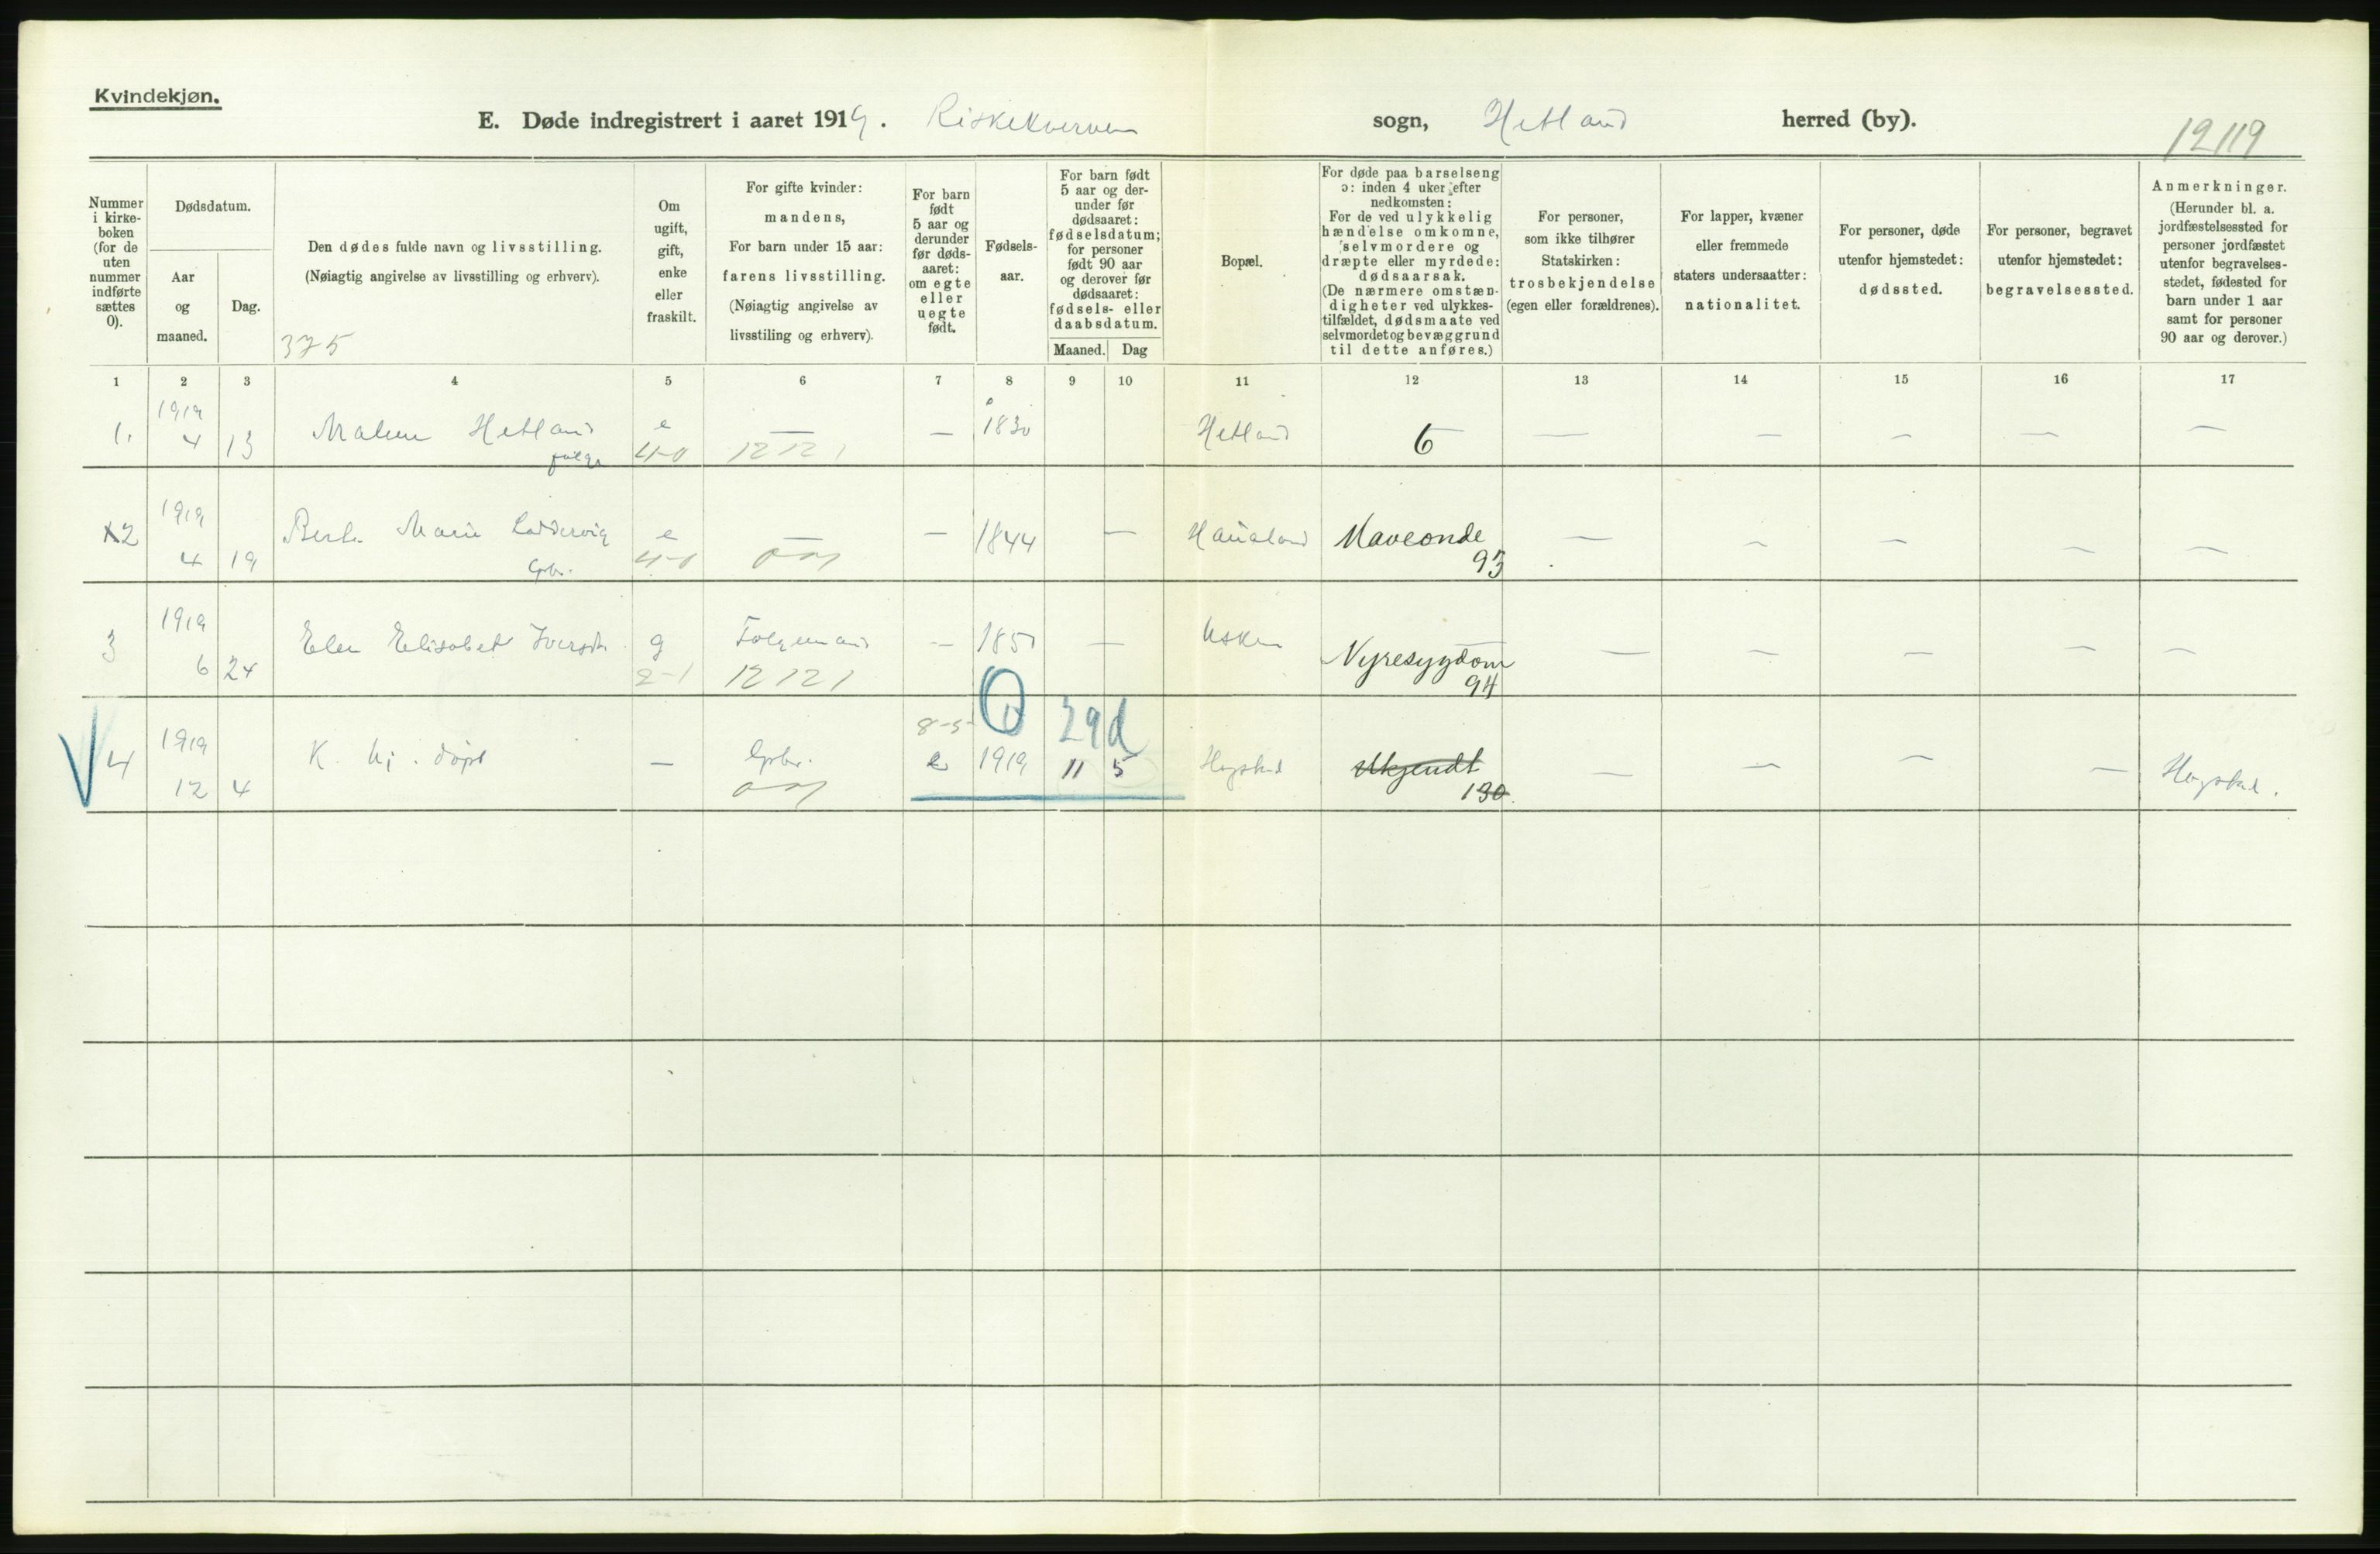 Kvindekjøn.
E. Døde indregistrert i aaret 1919. Riskekverven sogn, Hetland herred (by).
12119
Nummer i kirke-boken (for de uten nummer indførte sættes 0).
Dødsdatum.
Aar og maaned.
Dag.
Den dødes fulde navn og livsstilling.
(Nøiagtig angivelse av livsstilling og erhverv).
375
Om ugift, gift, enke eller fraskilt.
For gifte kvinder:
mandens,
For barn under 15 aar:
farens livsstilling.
(Nøiagtig angivelse av
livsstiling og erhverv).
For barn født 5 aar og derunder før døds-aaret: om egte eller uegte født.
Fødsels-aar.
For barn født 5 aar og der-under før dødsaaret: fødselsdatum; for personer født 90 aar og derover før dødsaaret: fødsels- eller daabsdatum.
Maaned. Dag
Bopæl.
For døde paa barselseng
ɔ: inden 4 uker efter
nedkomsten:
For de ved ulykkelig
hændelse omkomne,
selvmordere og
dræpte eller myrdede:
dødsaarsak.
(De nærmere omstæn-
digheter ved ulykkes-
tilfældet, dødsmaate ved
selvmordet og bevæggrund
til dette anføres.)
For personer,
som ikke tilhører
Statskirken:
trosbekjendelse
(egen eller forældrenes).
For lapper, kvæner
eller fremmede
staters undersaatter:
nationalitet.
For personer, døde
utenfor hjemstedet:
dødssted.
For personer, begravet
utenfor hjemstedet:
begravelsessted.
Anmerkninger.
(Herunder bl. a.
jordfæstelsessted for
personer jordfæstet
utenfor begravelses-
stedet, fødested for
barn under 1 aar
samt for personer
90 aar og derover.)
1 2 3 4 5 6 7 8 9 10 11 12 13 14 15 16 17
1. 1919 4 13 Malene Hetland e — — 1830 Hetland 6 — — — — —
4-0 12121
x2 1919 4 19 Marie e — — 1844 — Haualand Maveonde — — — — —
Gbr. 4-0 93
3 1919 6 24 Elen Elisabet g — 1851 — Usken Nyresygdom — — — — —
2-1 12121 94
8-5 1 29d
V 4 1919 12 4 K. Uj. døpt — Gbr. e 1919 11 5 Hogstad Ukjendt — — — — Hogstad.
130